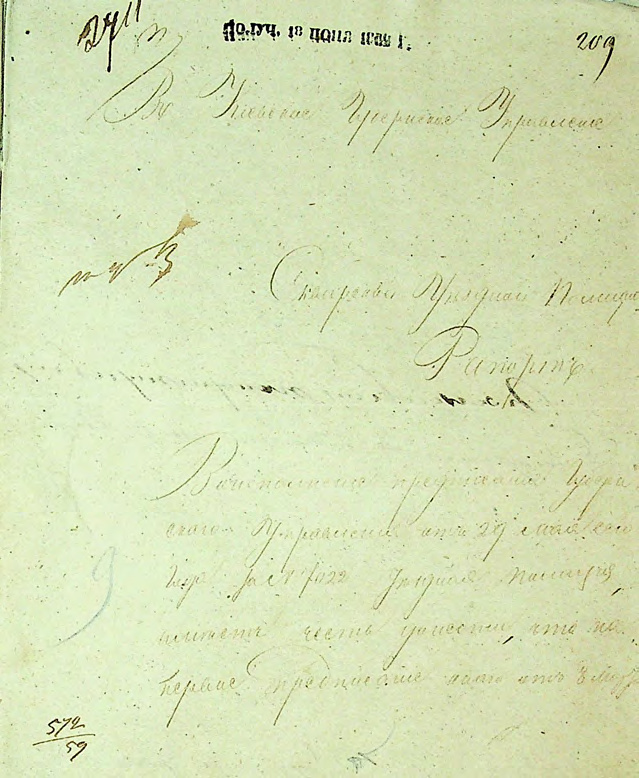 2711
Получ. 18 июня 1882 г.
209
Въ Киевское Губернское Управление
Сквирской Уездной Полиции
Рапортъ
Во исполнение предписания Губерн
скаго Управления отъ 29 мая сего
за № 7022 Уездная Полиция
имеетъ честь донести, что на
первое предписание отъ 8
572
59